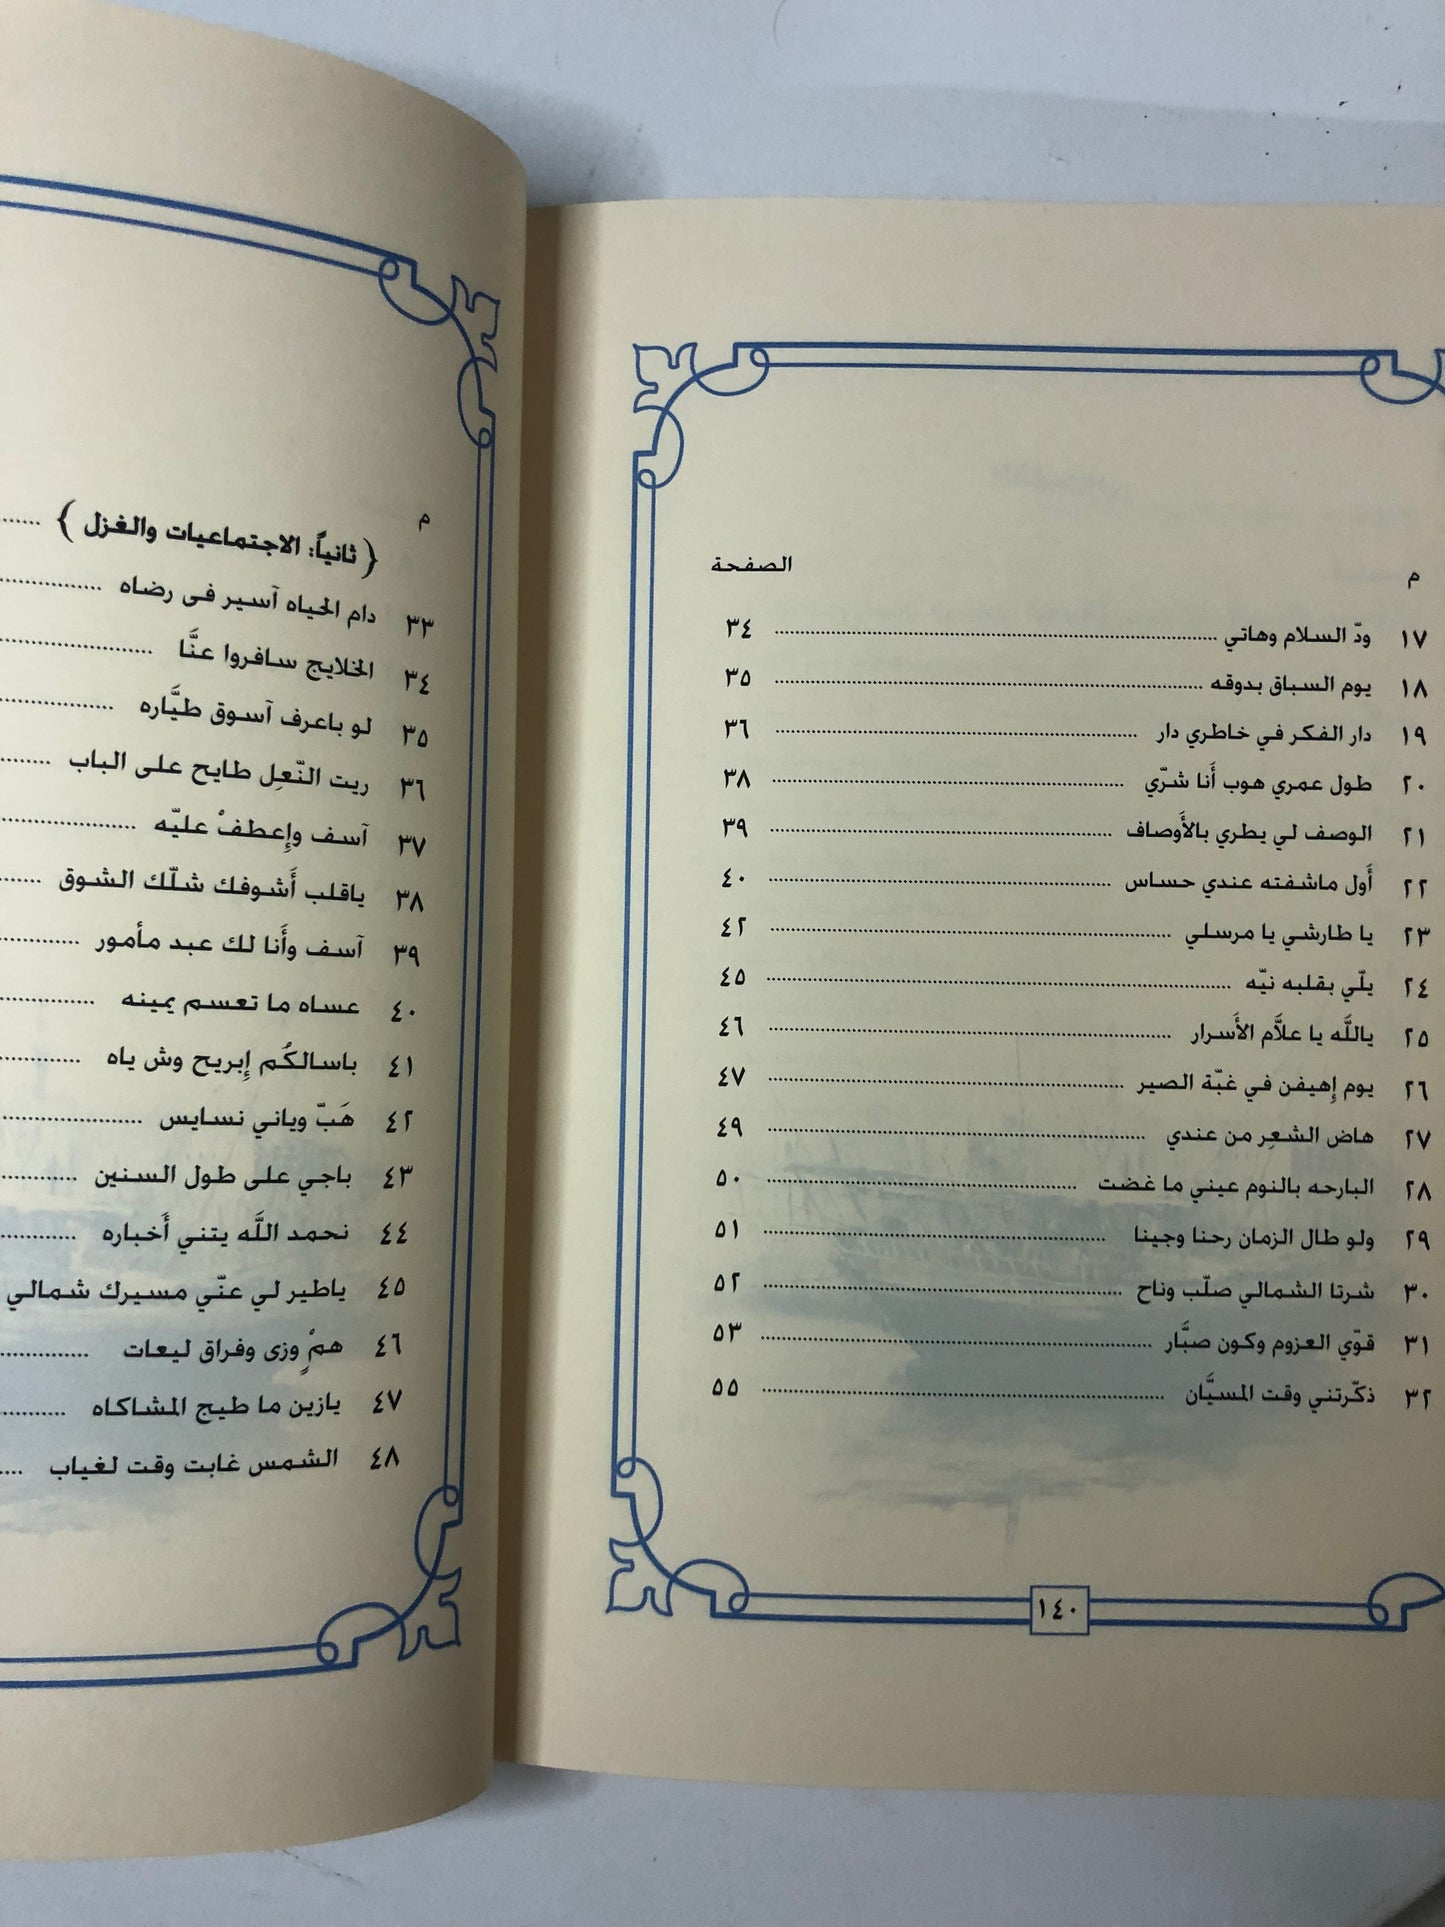 م الصفحة
١٧ ودّ السلام وهاتي ................ ٣٤
١٨ يوم السباق بدوقه ................ ٣٥
١٩ دار الفكر في خاطري دار ................ ٣٦
٢٠ طول عمري هوب أَنا شرّي ................ ٣٨
٢١ الوصف لي يطري بالأَوصاف ................ ٣٩
٢٢ أَول ماشفته عندي حساس ................ ٤٠
٢٣ يا طارشي يا مرسلي ................ ٤٢
٢٤ يلّي بقلبه نيّه ................ ٤٥
٢٥ ياللَّه يا علاَّم الأَسرار ................ ٤٦
٢٦ يوم إِهيفن في غبّة الصير ................ ٤٧
٢٧ هاض الشعِر من عندي ................ ٤٩
٢٨ البارحه بالنوم عيني ما غضت ................ ٥٠
٢٩ ولو طال الزمان رحنا وجينا ................ ٥١
٣٠ شرتا الشمالي صلّب وناح ................ ٥٢
٣١ قوّي العزوم وكون صبَّار ................ ٥٣
٣٢ ذكّرتني وقت المسيَّان ................ ٥٥
١٤٠
م
﴿ ثانياً: الاجتماعيات والغزل ﴾ ......
٣٣ دام الحياه آسير فى رضاه ................
٣٤ الخلايج سافروا عنَّا ................
٣٥ لو باعرف آسوق طيَّاره ................
٣٦ ريت النّعِل طايح على الباب ........
٣٧ آسف وإِعطفْ عليّه ................
٣٨ ياقلب أَشوفك شلّك الشوق ......
٣٩ آسف وأَنا لك عبد مأمور ............
٤٠ عساه ما تعسم يمينه ................
٤١ باسالكُم إِبريح وش ياه ............
٤٢ هَبّ وياني نسايس ................
٤٣ باجي على طول السنين ............
٤٤ نحمد اللَّه يتني أَخباره ............
٤٥ ياطير لي عنّي مسيرك شمالي
٤٦ همْ وزى وفراق ليعات ................
٤٧ يازين ما طيح المشاكاه ............
٤٨ الشمس غابت وقت لغياب ....